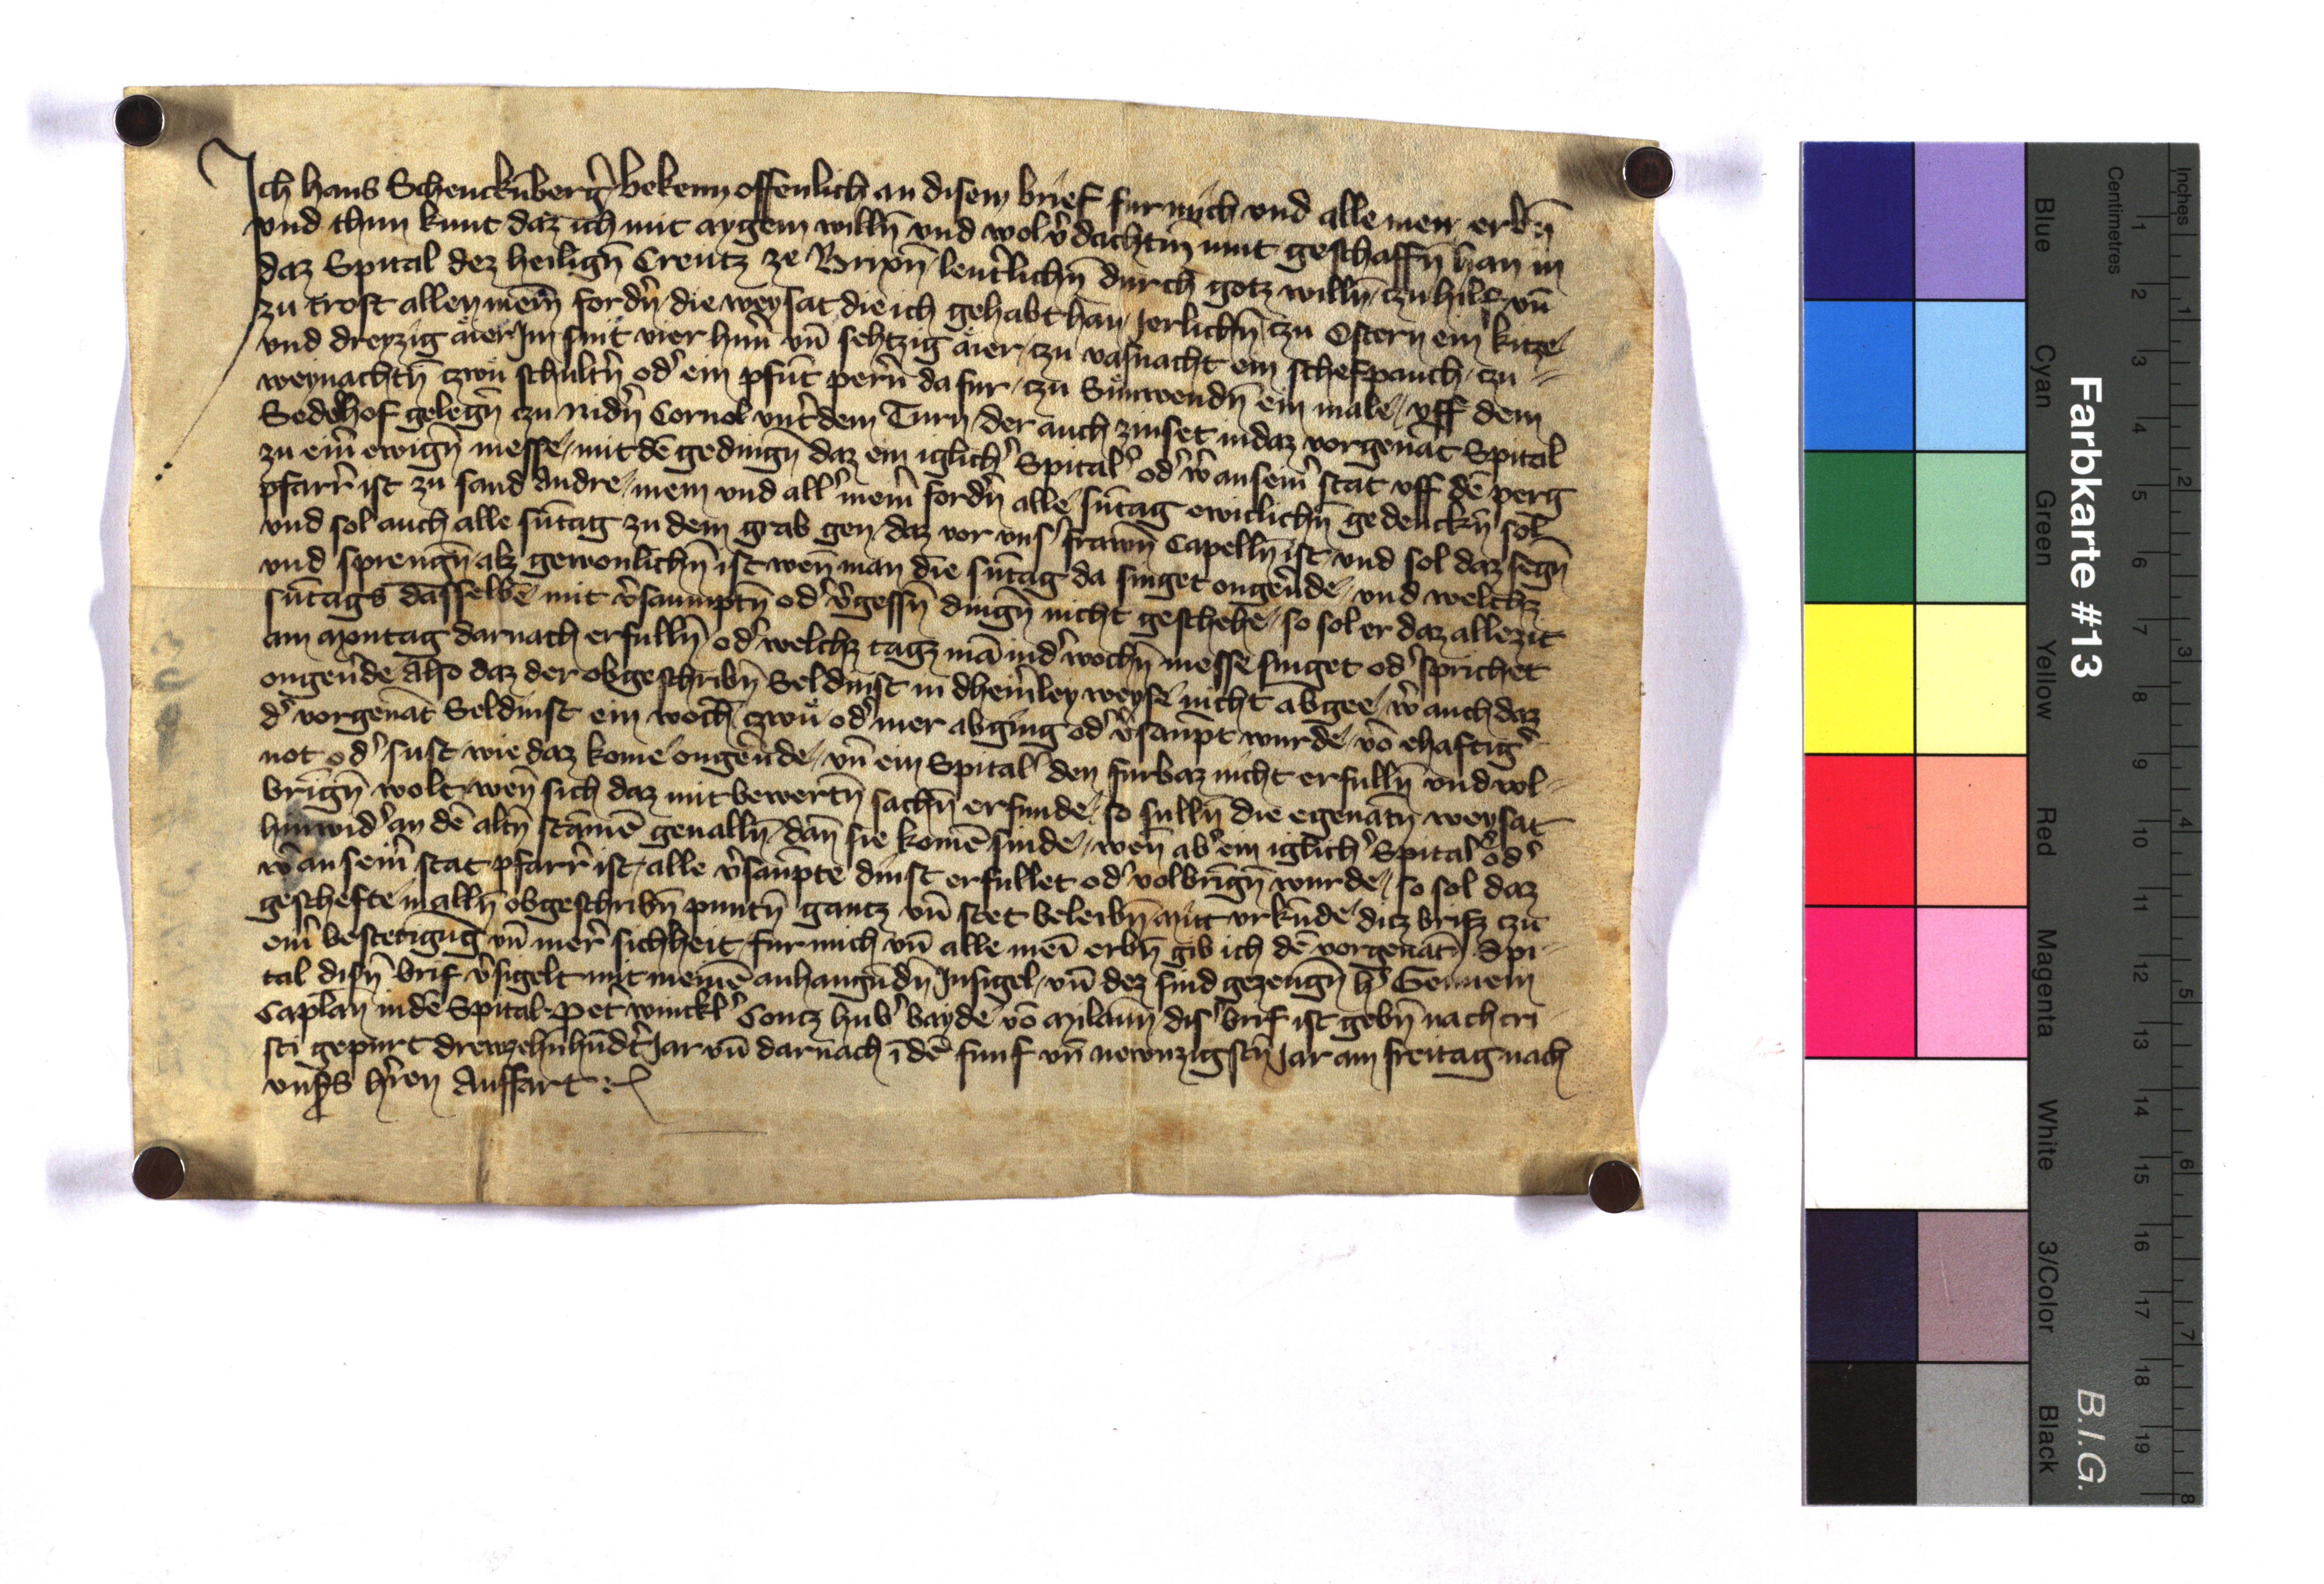 Ich Hans Schenckn̄berg̉ bekenn offenlich an disem brief fur mich vnd alle mein erbn̄
vnd thun kunt daz ich mit aygem willn̄ vnd wol v̉dachtm̄ mut geschaffn̄ han in
daz Spital dez heilign̄ Creutz ze Brixn̄ leut̉lichn̄ durch gotz willn̄ czu hilf vn̄
zu trost allen mein̄ fordn̉ die weysat die ich gehabt han Jerlichn̄ czu Ostern ein kitze
vnd dreyzig äier Jm snit vier hun̉ vn̄ sehtzig äier czu vasnacht ein schefpauch czu
weynachtn̄ czwu schultn̉ od̉ ein pfūt pern̉ dafur czu Sunwendn̄ ein male vff dem
Sedelhof gelegn̄ czu nidn̉ Cornol vnt̉ dem Turn der auch zinset in daz vorgenāt Spital
zu eim̉ ewign̄ messe mit dē gedingn̄ daz ein iglich̉ Spital̉ od̉ w̉ an seim̉ stat vff dē perg
pfarr̉ ist zu sand Andre mein vnd all̉ meim̉ fordn̉ alle sūtag ewiclichn̄ gedenckn̄ sol
vnd sol auch alle sūtag zu dem grab gen daz vor vns̉ frawn̄ Capelln̄ ist vnd sol daz segn̄
vnd sprengn̄ alz gewonlichn̄ ist wen̄ man die sūtag da singet ongeủde vnd welchz
sūtags dasselbe mit v̉saumptn̄ od̉ v̉gessn̄ dingn̄ nicht geschehe so sol er daz allezit
am Montag darnach erfulln̄ od̉ welchz tagz mā in d̉ wochn̄ messe singet od̉ sprichet
ongeủde Also daz der obgeschribn̄ Seldinst in dheim̉ley weyse nicht abgee w̉ auch daz
d̉ vorgenāt Seldinst ein woch czwu od̉ mer abging od̉ v̉saūpt wurde vō ehaftig̉
not od̉ sust wie daz kome ongeủde vn̄ ein Spital̉ den furbaz nicht erfulln̄ vnd vol
brign̄ wolt wen̄ sich daz mit bewertn̄ sachn̄ erfunde so sulln̄ die egenātn̄ weysat
hinwid̉ an dē altn̄ stāmē geualln̄ dan̄ sie komē sinde wen̄ ab̉ ein iglich̉ Spital̉ od̉
w̉ an seim̉ stat pfarr̉ ist alle v̉saūpte dinst erfullet od̉ volbrign̄ wurde so sol daz
geschefte in alln̄ obgeschribn̄ puntn̄ gantz vn̄ stet beleibn̄ Mit vrkūde ditz brifz czu
eim̉ bestetigūg vn̄ mer̉ sichheit fur mich vn̄ alle meī erbn̄ gib ich dē vorgenātn̄ Spi
tal disn̄ brif v̉sigelt mit meinē anhangūdn̄ Insigel vn̄ dez sind gezeugn̄ h̉
Caplan in dē Spital Pet̉ winckl̉ Contz hub̉ bayde vō Milaun̄ dis̉ brif ist gebn̄ nach cri
sti gepurt drewzehnhūdt̉ Jar vn̄ darnach ī dē funf vn̄ newnzigstn̄ Jar am freitag nach
vns̉s hr̉en Auffart

Farbkarte #13
B.I.G.
Blue Cyan Green Yellow Red Magenta White 3/Color Black
Centimetres
1 2 3 4 5 6 7 8 9 10 11 12 13 14 15 16 17 18 19
Inches
1 2 3 4 5 6 7 8